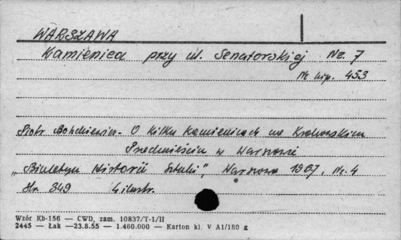 WARSZAWA
Kamienica przy ul. Senatorskiej Nr. 7
Nr hip. 453
Piotr Bohdziewicz - O kilku kamienicach na Krakowskim
Przedmieściu w Warszawie
„Biuletyn Historii Sztuki", Warszawa 1967, Nr. 4
Str. 349 4 ilustr.
Wzór Kb-156 — CWD, zam. 10837/T-1/II
2445 — Łak —23.8.55 — 1.460.000 — Karton kl. V A1/180 g